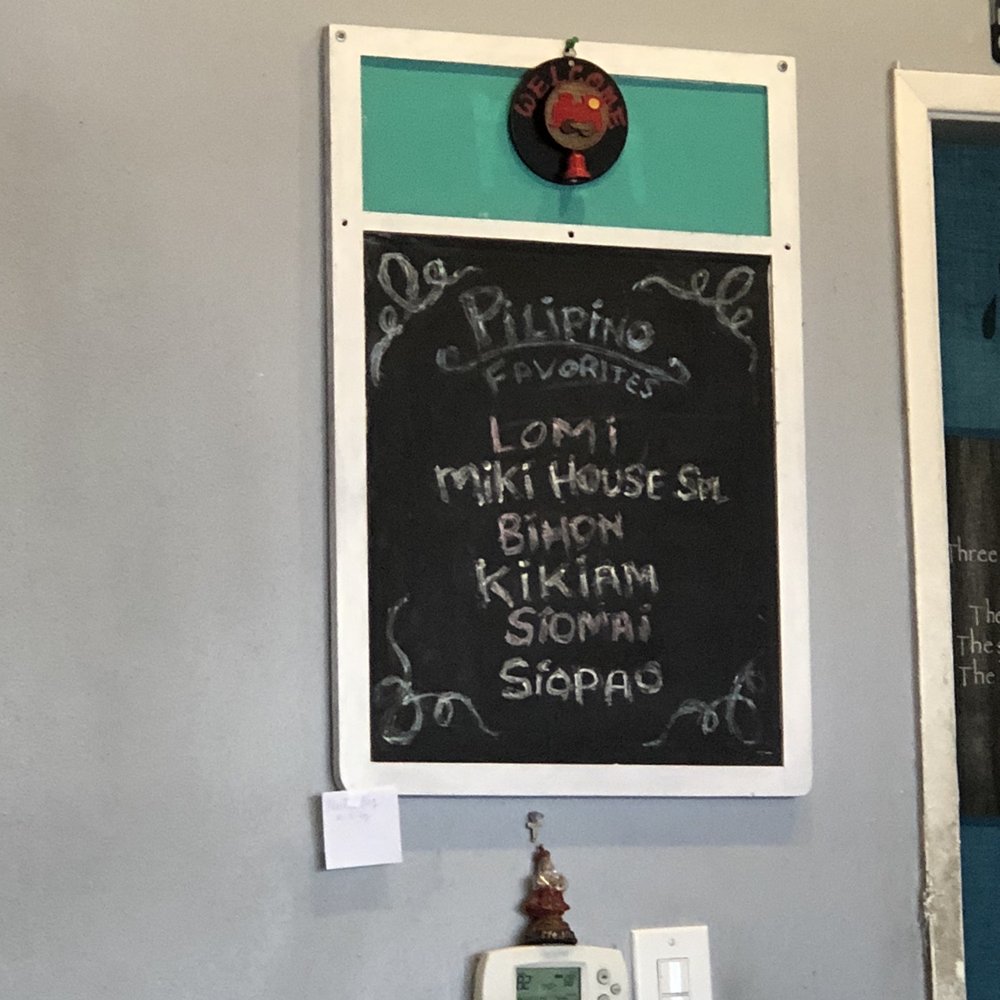 WELCOME
PiLiPiNO
FAVORITES
LOMi
MiKi HOUSE SPL
BiHON
KiKiAM
SiOMAi
SiOPAO
Three
The
82